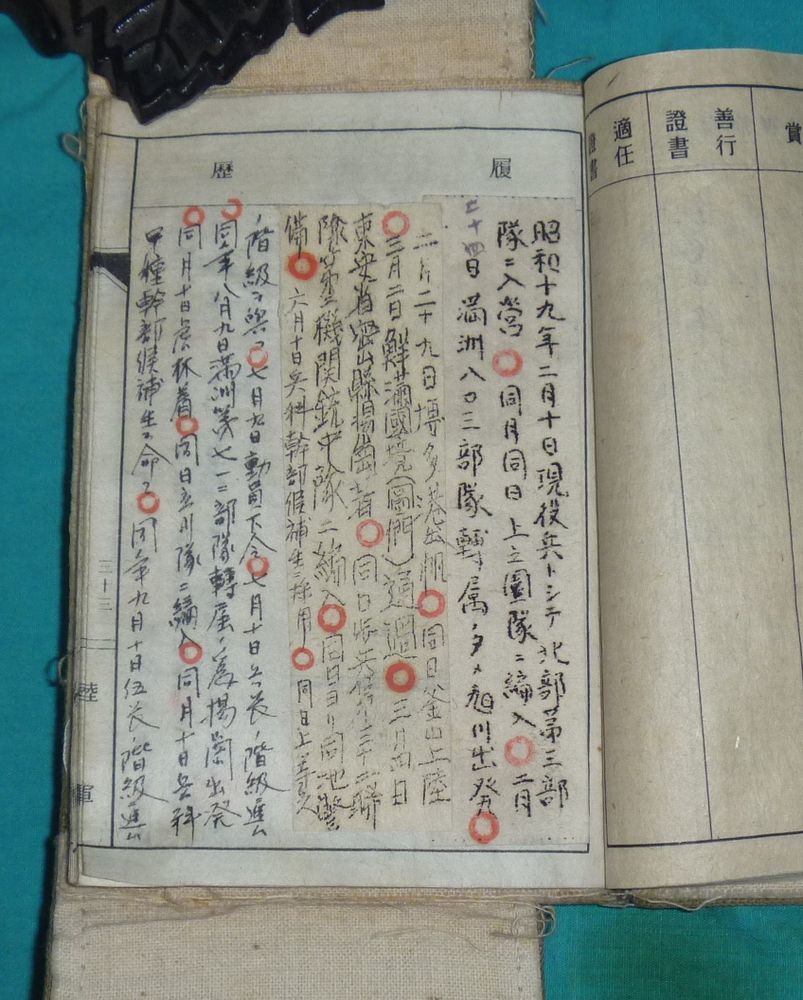 賞
善行
證書
適任
證書
履歴
昭和十九年二月十日現役兵トシテ北部第三部
隊ニ入營○同月同日上立團隊ニ編入○二月
二十四日満洲八〇三部隊轉属ノタメ旭川出発○
二月二十九日博多港出帆○同日釜山上陸
○三月二日鮮満國境(圖們)通過○三月四日
東安省密山縣楊崗着○同日歩兵第三十二聯
隊第三機関銃中隊ニ編入○同日ヨリ同地警
備○六月十日兵科幹部候補生ニ採用○同日上等兵
ノ階級ヲ與フ○七月九日動員下令○七月十日兵長ノ階級ニ進ム
○同年八月九日満洲第七一二部隊轉属ノ為楊崗出発
○同月十日虎林着○同日立川隊ニ編入○同月十日兵科
甲種幹部候補生ヲ命ズ○同年九月十日伍長ノ階級ニ進ム
三十三
陸軍